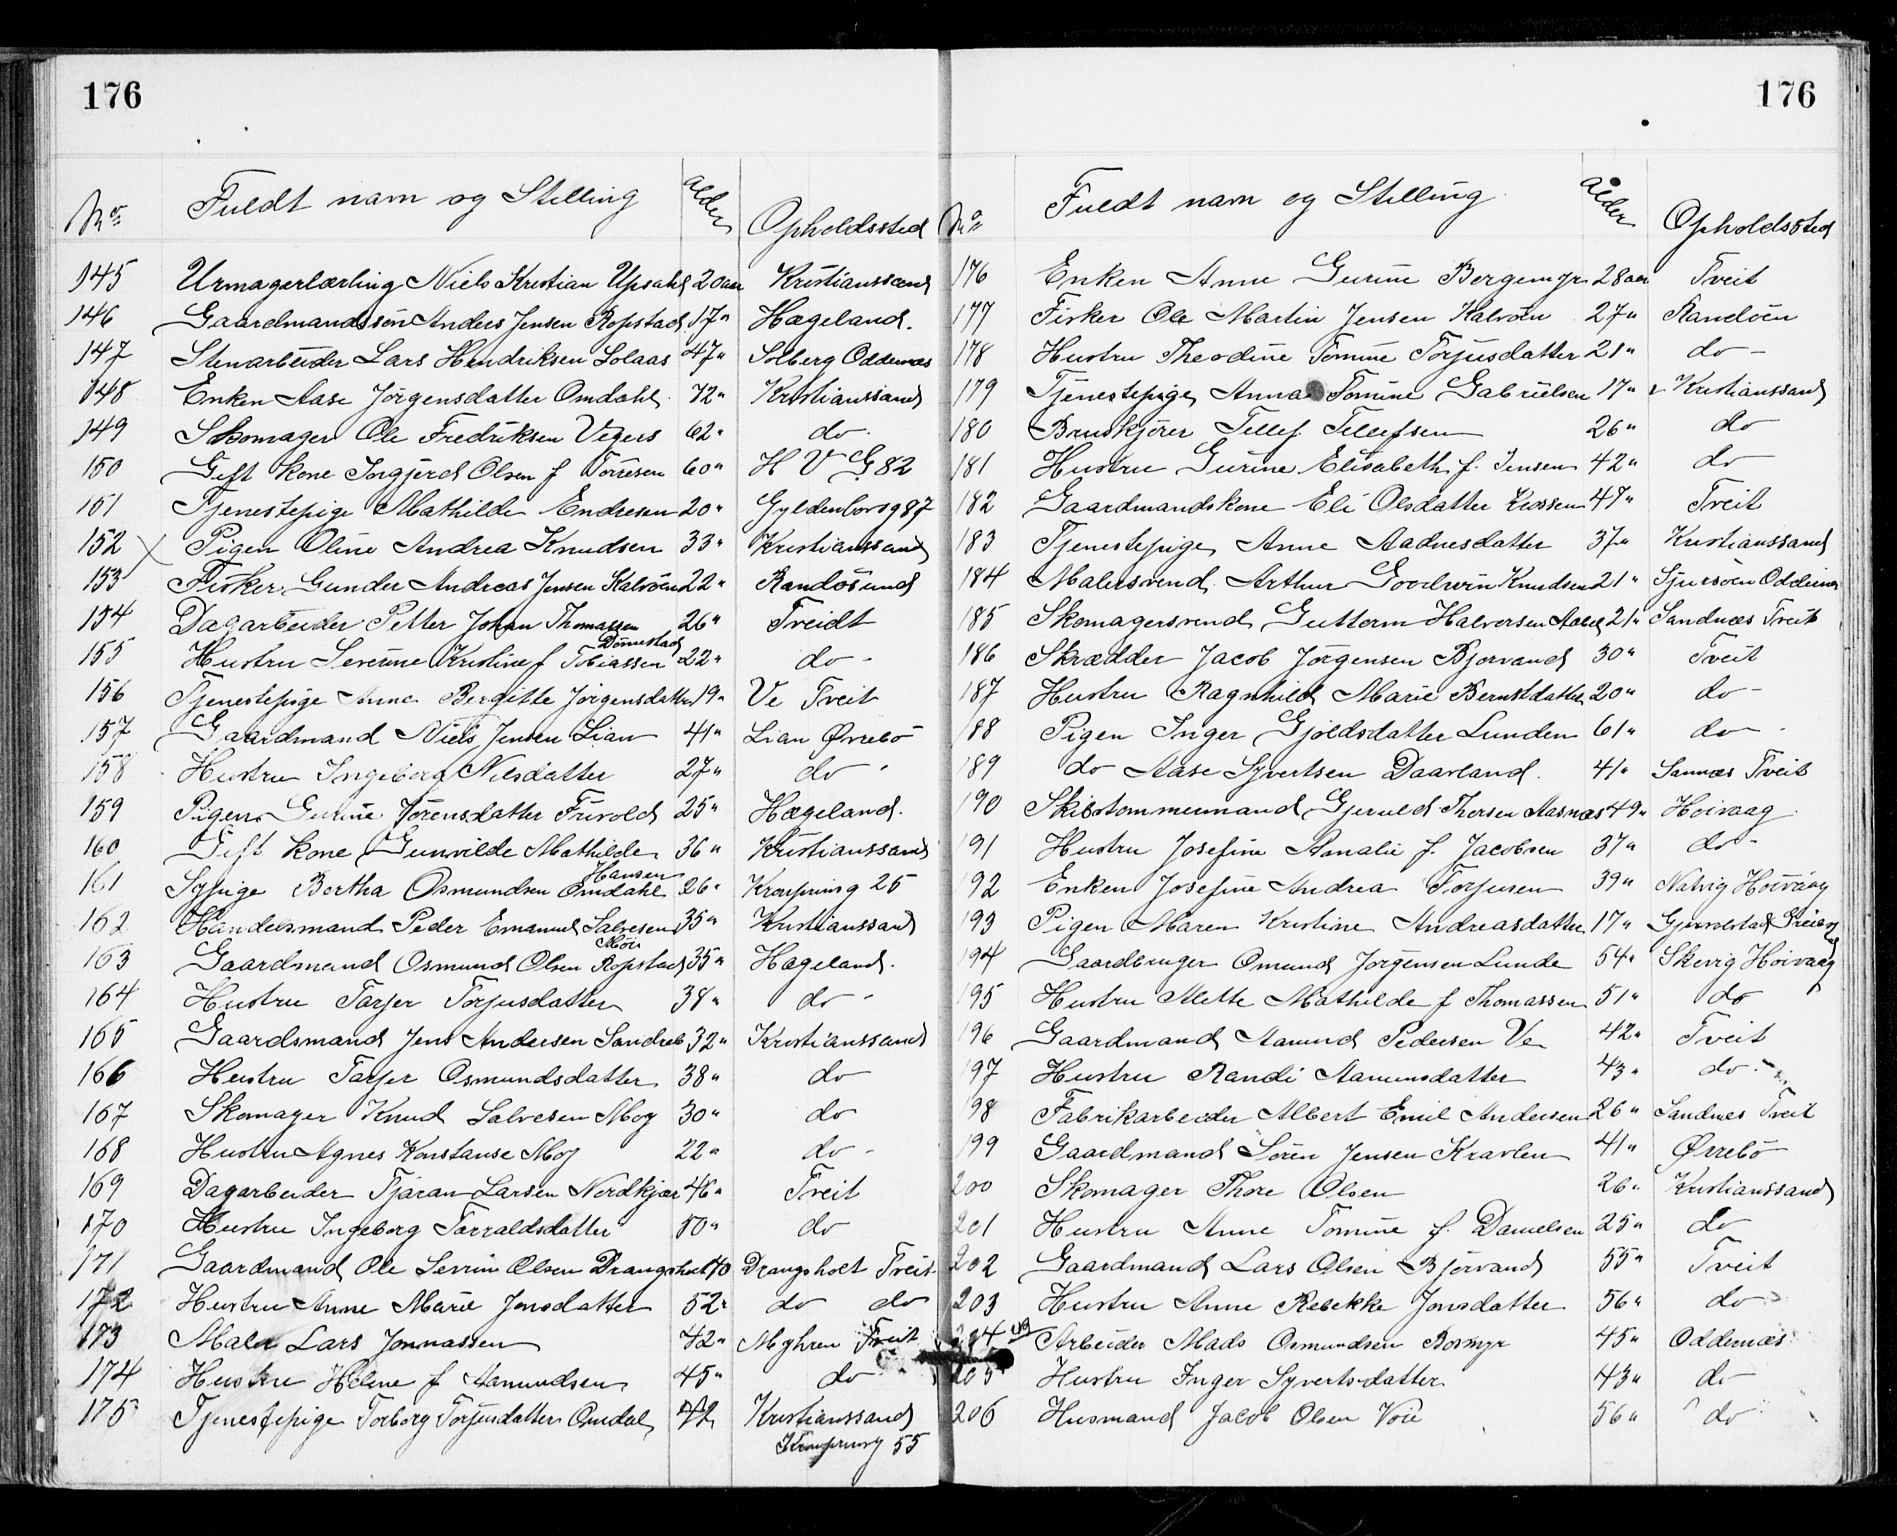 176
No Fuldt navn og Stilling alder Opholdssted
145 Urmagerlærling Niels Kristian Upsahl 20 aar Kristianssand
146 Gaardmandssøn Anders Jensen Ropstad 17" Hægeland.
147 Stenarbeider Lars Hendriksen Solaas 47" Solberg Oddernes
148 Enken Aase Jørgensdatter Omdahl 72" Kristianssand
149 Skomager Ole Fredriksen Vegers 62" do.
150 Gift kone Ingjerd Olsen f Torresen 60" H V G 82
151 Tjenestepige Mathilde Endresen 20" Gyldenborsg 87
152 Pigen Oline Andrea Knudsen 33" Kristianssand
153 Fisker Gunder Andreas Jensen Kalvøen 22" Randøsund
154 Dagarbeider Petter Johan Thomassen 26" Tveidt
Dønnestad
155 Hustru Severine Kristine f Tobiassen 22" do -
156 Tjenestepige Anne Bergitte Jørgensdatter 19" Ve Tveit
157 Gaardmand Niels Jensen Lian 41" Lian Øvrebö
158 Hustru Ingeborg Nilsdatter 27" do "
159 Pigen Gurine Sörensdatter Frivold 25" Hægeland.
160 Gift kone Gunvilde Mathilde 36" Kristianssand
Hansen
161 Sypige Bertha Osmundsen Omdahl 26" Kronprinsg 25
162 Handelsmand Peder Emanuel Salvesen 35" Kristianssand
Moi
163 Gaardmand Osmund Olsen Ropstad 35" Hægeland.
164 Hustru Tarjer Torjusdatter 38" do "
165 Gaardsmand Jens Andersen Sandreb 32" Kristianssand
166 Hustru Tarjer Osmundsdatter 38" do
167 Skomager Knud Salvesen Moy 30" do
168 Hustru Agnes Konstanse Moy 22" do -
169 Dagarbeider Tjäran Larsen Nordkjær 46" Tveit
170 Hustru Ingeborg Tarraldsdatter 50" do
171 Gaardmand Ole Severin Olsen Drangsholt 40 Drangsholt Tveit
172 Hustru Anne Marie Jonsdatter 52" do do
173 Maler Lars Jonnassen 42" Moghren Tveit
174 Hustru Helene f Aamundsen 45" do
175 Tjenestepige Torborg Torjusdatter Omdal 42 Kristianssand
Kronprinsg 55
176
No Fuldt navn og Stilling alder Opholdssted
176 Enken Anne Gurine Bergemyr 28 aar Tveit
177 Fisker Ole Martin Jensen Kalvøen 27" Randöen
178 Hustru Theodine Tomine Torjusdatter 21" do -
179 Tjenestepige Anna Tomine Gabrielsen 17" Kristianssand
180 Bruskjører Tellef Tellefsen 26" do
181 Hustru Gurine Elisabeth f. Jensen 42" do
182 Gaardmandskone Eli Olsdatter Krossen 47" Tveit
183 Tjenestepige Anne Aadnesdatter 37" Kristianssand
184 Malersvend Arthur Goodwin Knudsen 21" Sjursöen Oddernes
185 Skomagersvend Guttorm Halvorsen 21" Sandnes Tveit
186 Skrædder Jacob Jörgensen Bjorvand 30" Tveit
187 Hustru Ragnhild Marie Berntsdatter 20" do -
188 Pigen Inger Gjoldsdatter Lunden 61" do -
189 do Aase Syvertsen Daarland. 41" Sannes Tveit
190 Skibstommermand Gjeruld Thorsen Aasnæs 49" Hoivaag
191 Hustru Josefine Amalie f. Jacobsen 37" do -
192 Enken Josefine Andrea Torjusen 39" Natvig Hoivaag
193 Pigen Maren Kristine Andreasdatter 17" Gjervolstad
194 Gaardbruger Omund Jorgensen Lunde 54" Skevig Hoivaag
195 Hustru Mette Mathilde f Thomassen 51" do
196 Gaardmand Aanund Pedersen Ve 42" Tveit
197 Hustru Randi Aamunsdatter 43" do.
198 Fabrikarbeider Albert Emil Andersen 26" Sandnes Tveit
199 Gaardmand Sören Jensen Kravlen 41" Øvrebö
200 Skomager Thore Olsen 26" Kristianssand
201 Hustru Anne Tomine f. Danielsen 25" do
202 Gaardmand Lars Olsen Bjorvand 55" Tveit
203 Hustru Anne Rebekke Jonsdatter 56" do
204 Arbeider Mads Osmundsen Bosmyr 45" Oddernes
205 Hustru Inger Syvertsdatter 43" do
206 Husmand Jacob Olsen Voie 56" do